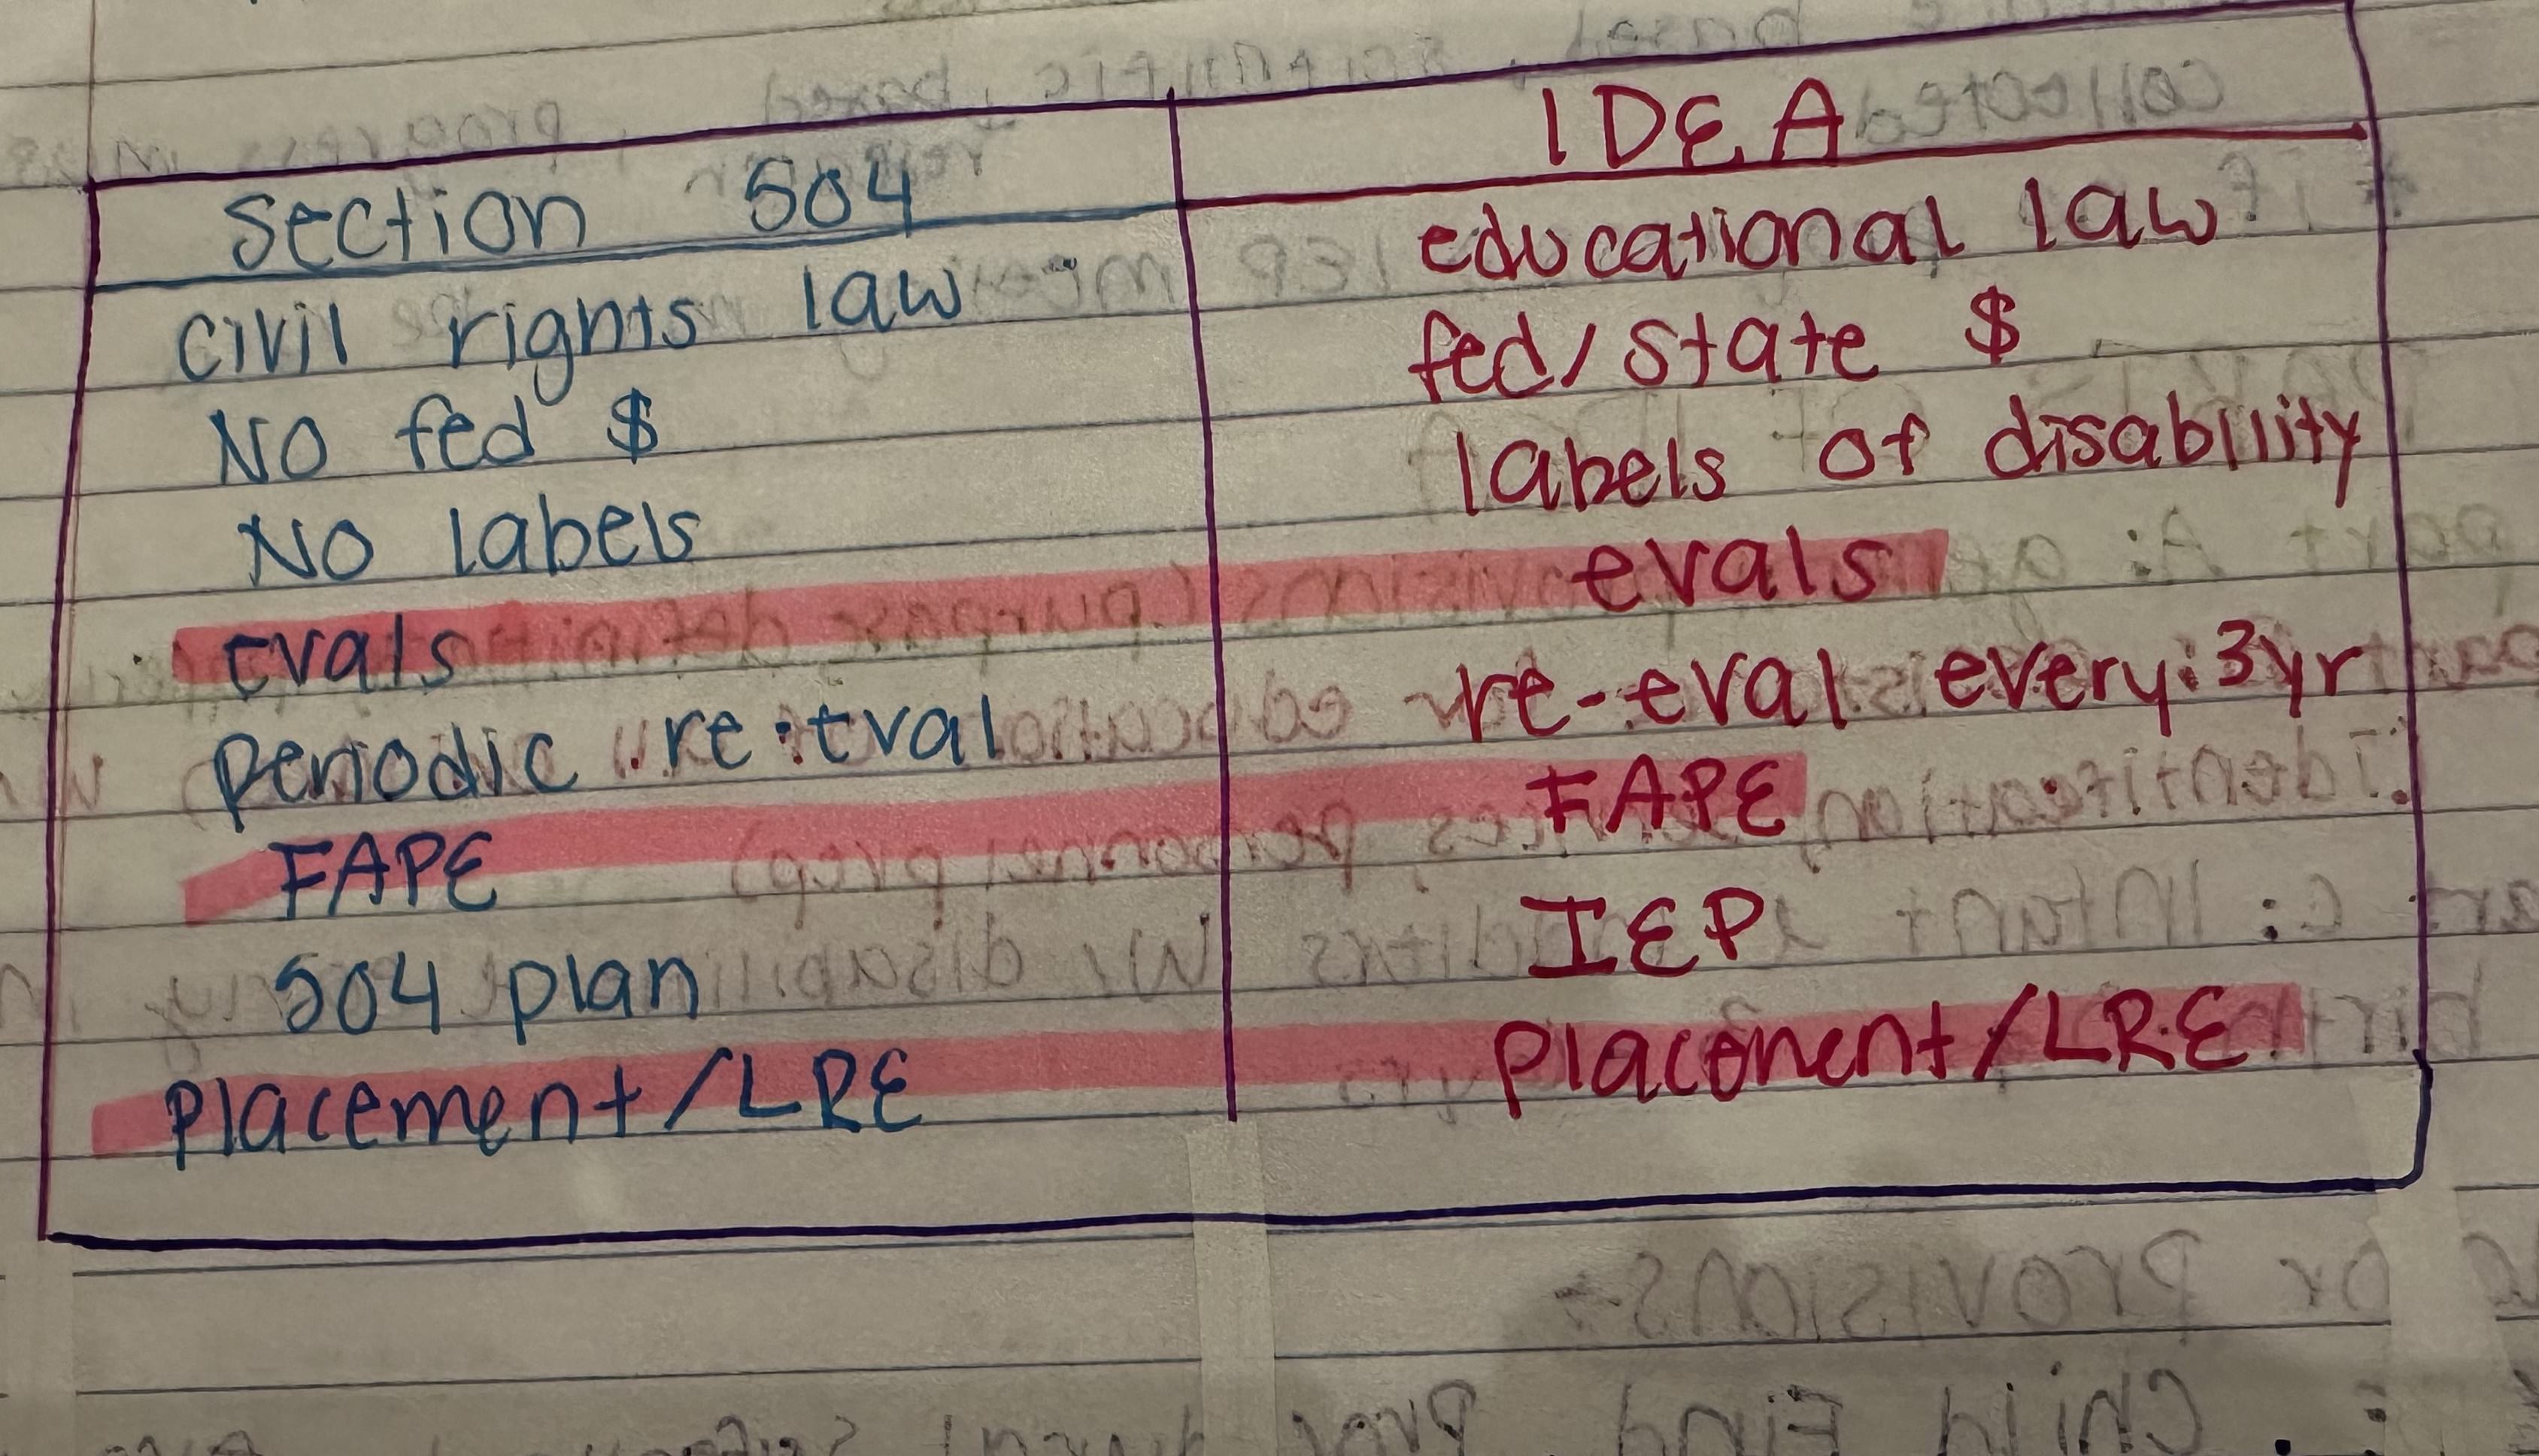 Section 504
civil rights law
No fed $
No labels
evals
periodic re-eval
FAPE
504 plan
Placement/LRE
IDEA
educational law
fed/state $
labels of disability
evals
re-eval every 3yr
FAPE
IEP
Placement/LRE